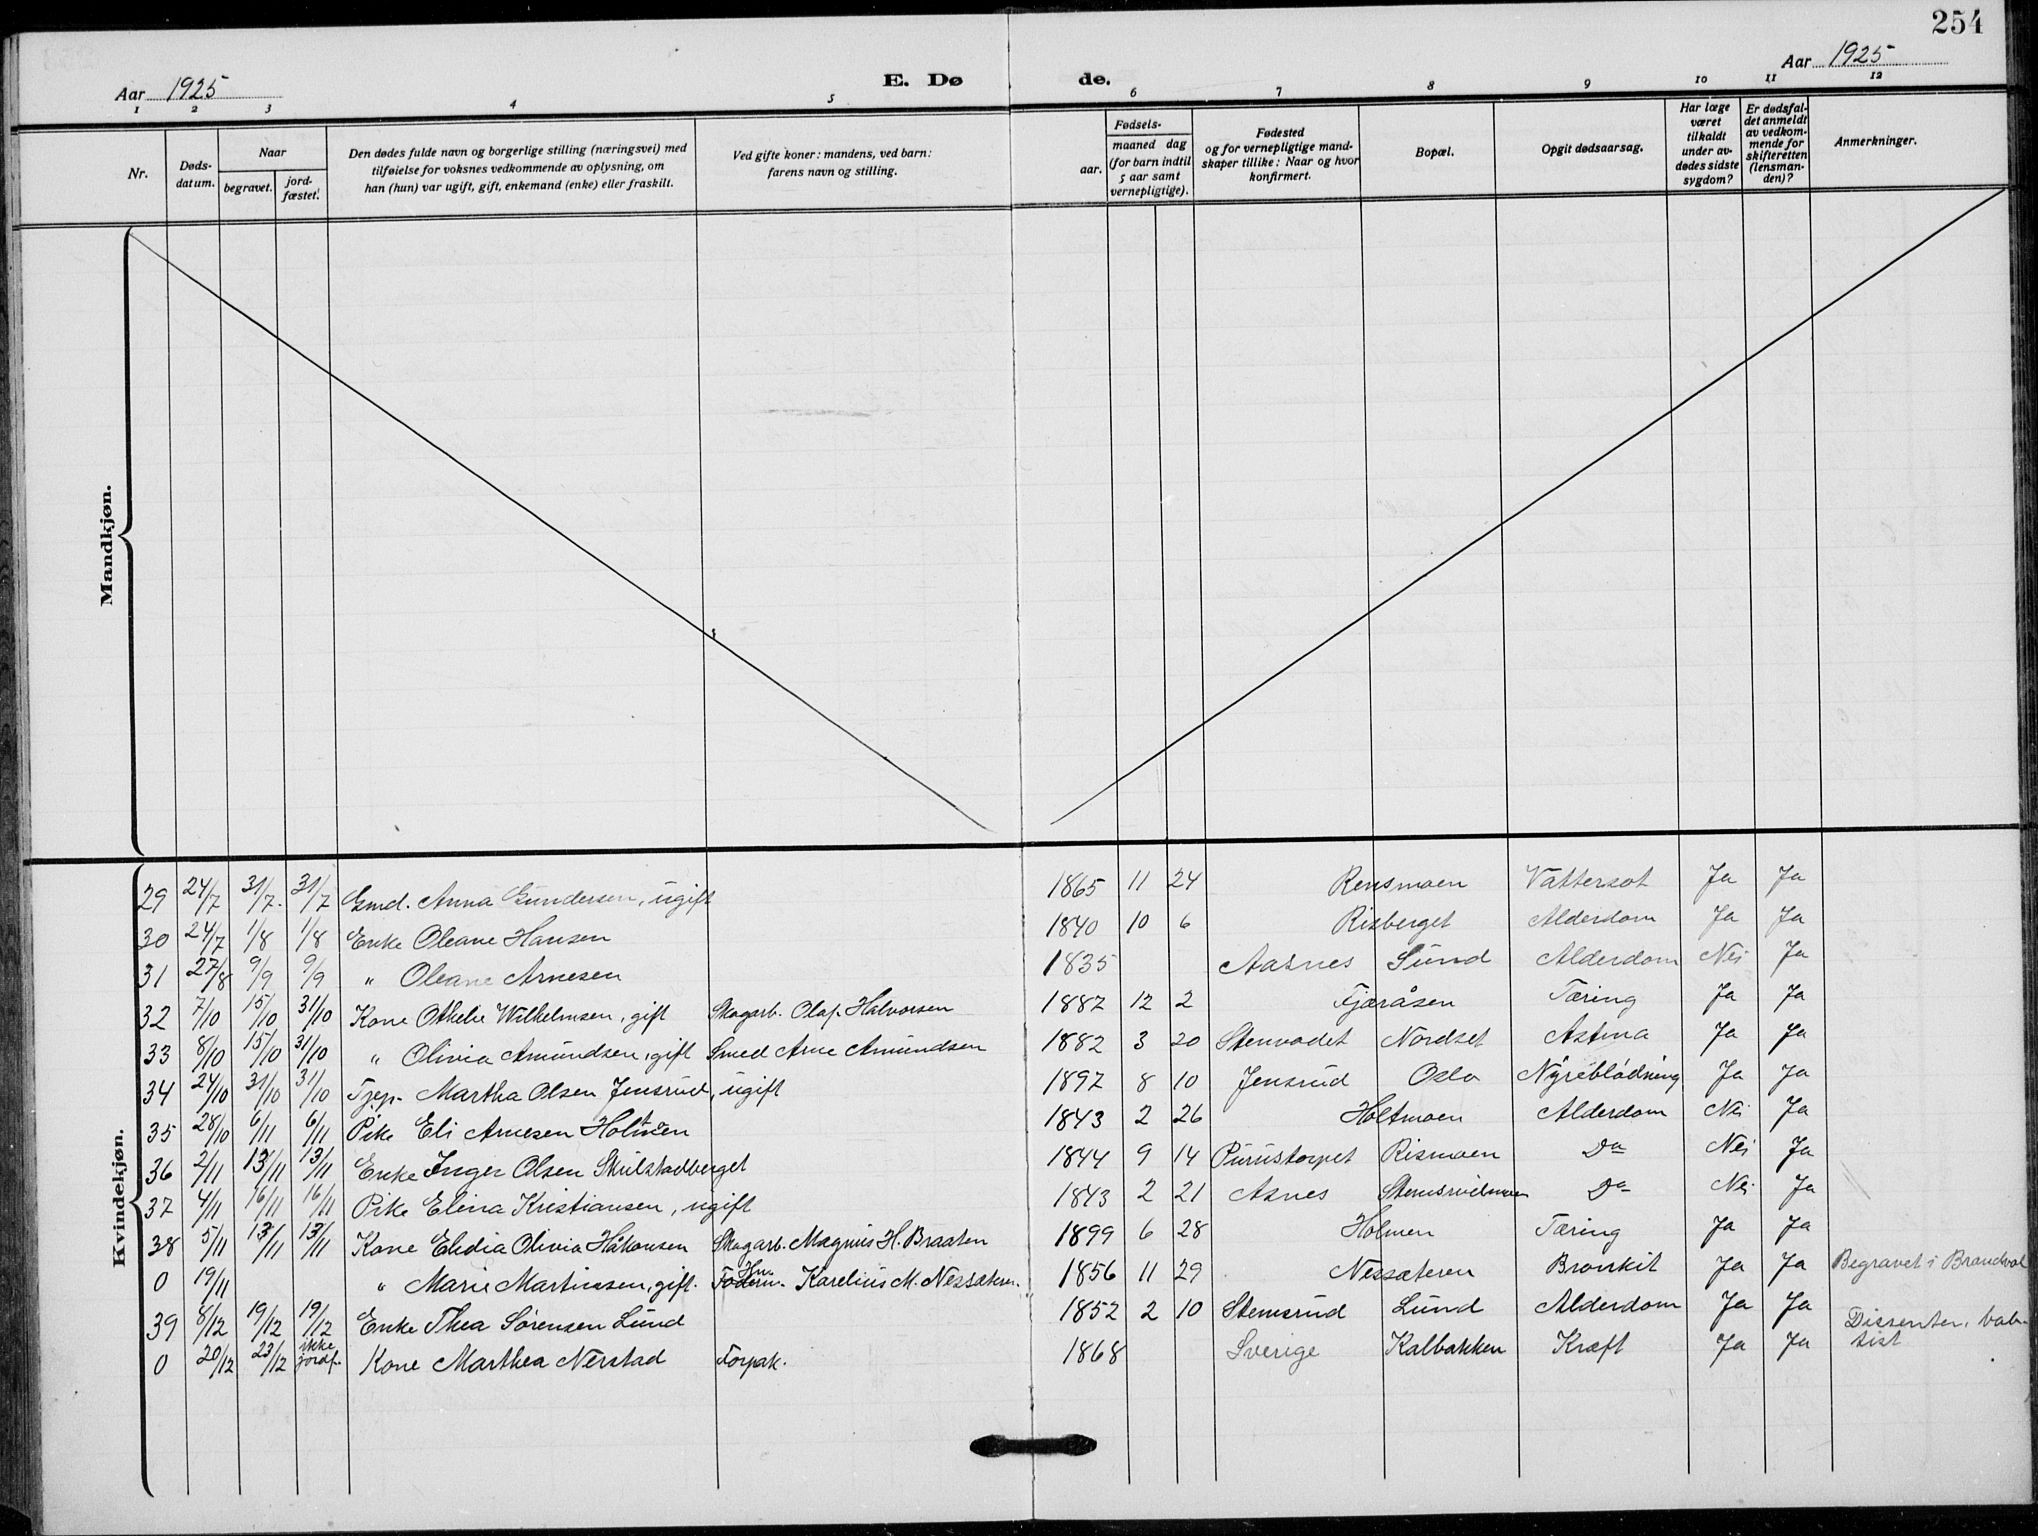 254
Aar 1925
E. Dø
de.
Aar 1925
1 2 3 4 5 6 7 8 9 10 11 12
Nr.
Døds-
datum.
Naar
begravet.
jord-
fæstet.
Den dødes fulde navn og borgerlige stilling (næringsvei) med
tilføielse for voksnes vedkommende av oplysning, om
han (hun) var ugift, gift, enkemand (enke) eller fraskilt.
Ved gifte koner: mandens, ved barn:
farens navn og stilling.
Fødsels-
aar.
maaned dag
(for barn indtil
5 aar samt
vernepligtige).
Fødested
og for vernepligtige mand-
skaper tillike: Naar og hvor
konfirmert.
Bopæl.
Opgit dødsaarsag.
Har læge
været
tilkaldt
under av-
dødes sidste
sygdom?
Er dødsfal-
det anmeldt
av vedkom-
mende for
skifteretten
(lensman-
den)?
Anmerkninger.
Mandkjøn.
Kvindekjøn.
29 24/7 31/7 31/7 Gmd. Anna Gundersen, ugift 1865 11 24 Rensmoen Vattersot Ja Ja
30 24/7 1/8 1/8 Enke Oleane Hansen 1840 10 6 Risberget Alderdom Ja Ja
31 27/8 9/9 9/9 " Oleane Arnesen 1835 Aasnes Lund Alderdom Nei Ja
32 7/10 15/10 31/10 Kone Othelie Wilhelmsen, gift Skogarb. Olaf Halvorsen 1887 12 2 Fjæråsen Tæring Ja Ja
33 8/10 15/10 31/10 " Olivia Amundsen, gift Smed Arne Amundsen 1882 3 20 Stenvadet Nordset Astma Ja Ja
34 24/10 31/10 31/10 Tjep. Martha Olsen Jensrud, ugift 1897 8 10 Jensrud Oslo Nyreblødning Ja Ja
35 28/10 6/11 6/11 Pike Eli Arnesen Holtmoen 1843 2 26 Holtmoen Alderdom Nei Ja
36 2/11 13/11 13/11 Enke Inger Olsen Skulstadberget 1844 9 14 Purustorpet Rismoen Do Nei Ja
37 4/11 16/11 16/11 Pike Elina Kristiansen, ugift 1843 2 21 Asnes Stemsrudmoen Do Nei Ja
38 5/11 13/11 13/11 Kone Elidia Olivia Håkonsen Skogarb. Magnus H. Braaten 1899 6 28 Holmen Tæring Ja Ja
0 19/11 " Marie Martinsen, gift. Karelius M. Nessæteren. 1856 11 29 Nessæteren Bronkit Ja Ja Begravet i Brandval
39 8/12 19/12 19/12 Enke Thea Sørensen Lund 1852 2 10 Stemsrud Lund Alderdom Ja Ja
0 20/12 23/12 ikke jordf. Kone Marthea Nerstad Forpak. 1868 Sverige Kalbakken Kræft Ja Ja Dissenter, bab-
tist